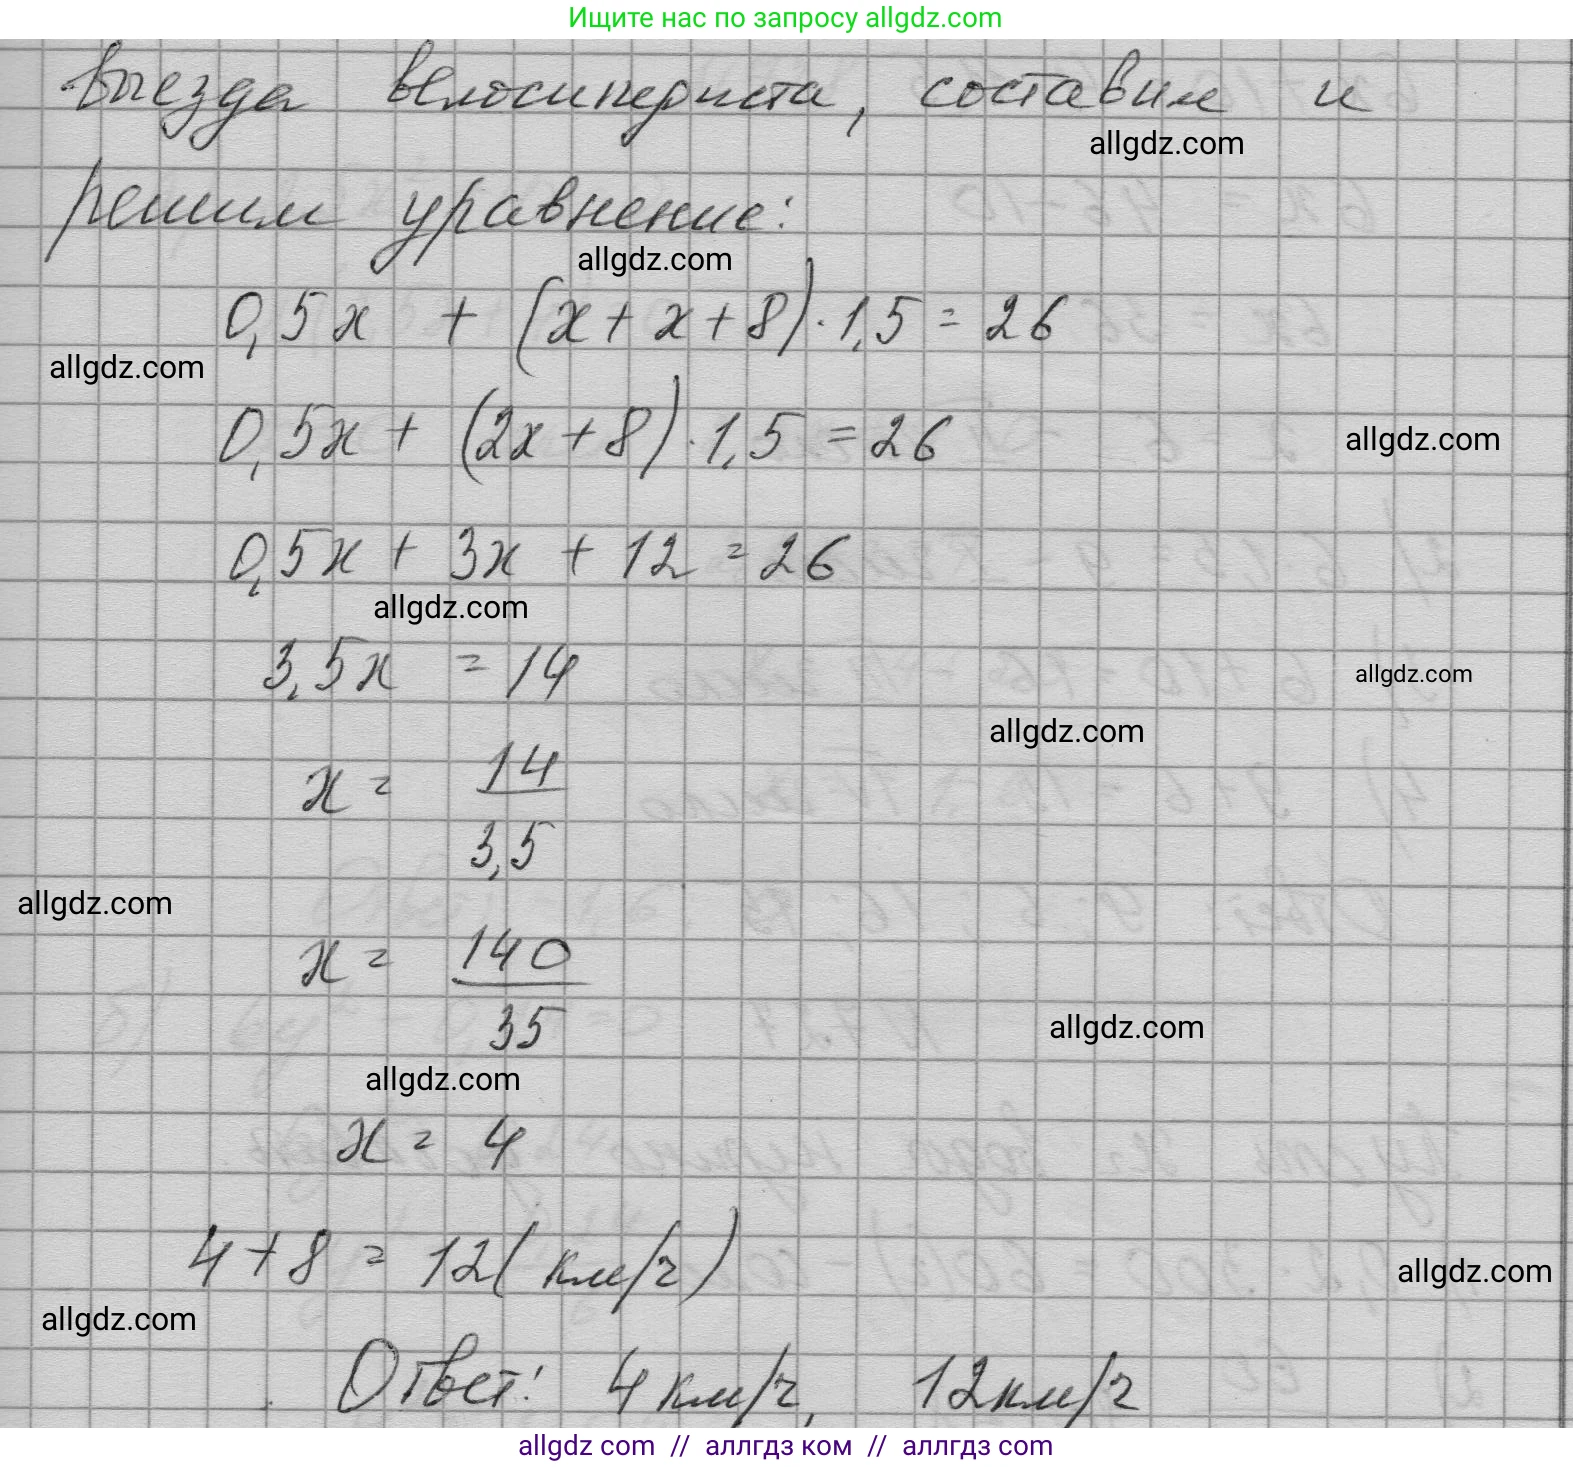 Ищите нас по запросу allgdz.com
выезда велосипедиста, составим и
allgdz.com
решим уравнение:
allgdz.com
0,5x + (x + x + 8) · 1,5 = 26
allgdz.com
0,5x + (2x + 8) · 1,5 = 26
allgdz.com
0,5x + 3x + 12 = 26
allgdz.com
3,5x = 14
allgdz.com
allgdz.com
x = 14
3,5
allgdz.com
x = 140
35
allgdz.com
allgdz.com
x = 4
4 + 8 = 12 (км/ч)
allgdz.com
allgdz.com
Ответ: 4 км/ч, 12 км/ч
allgdz com // аллгдз ком // аллгдз com